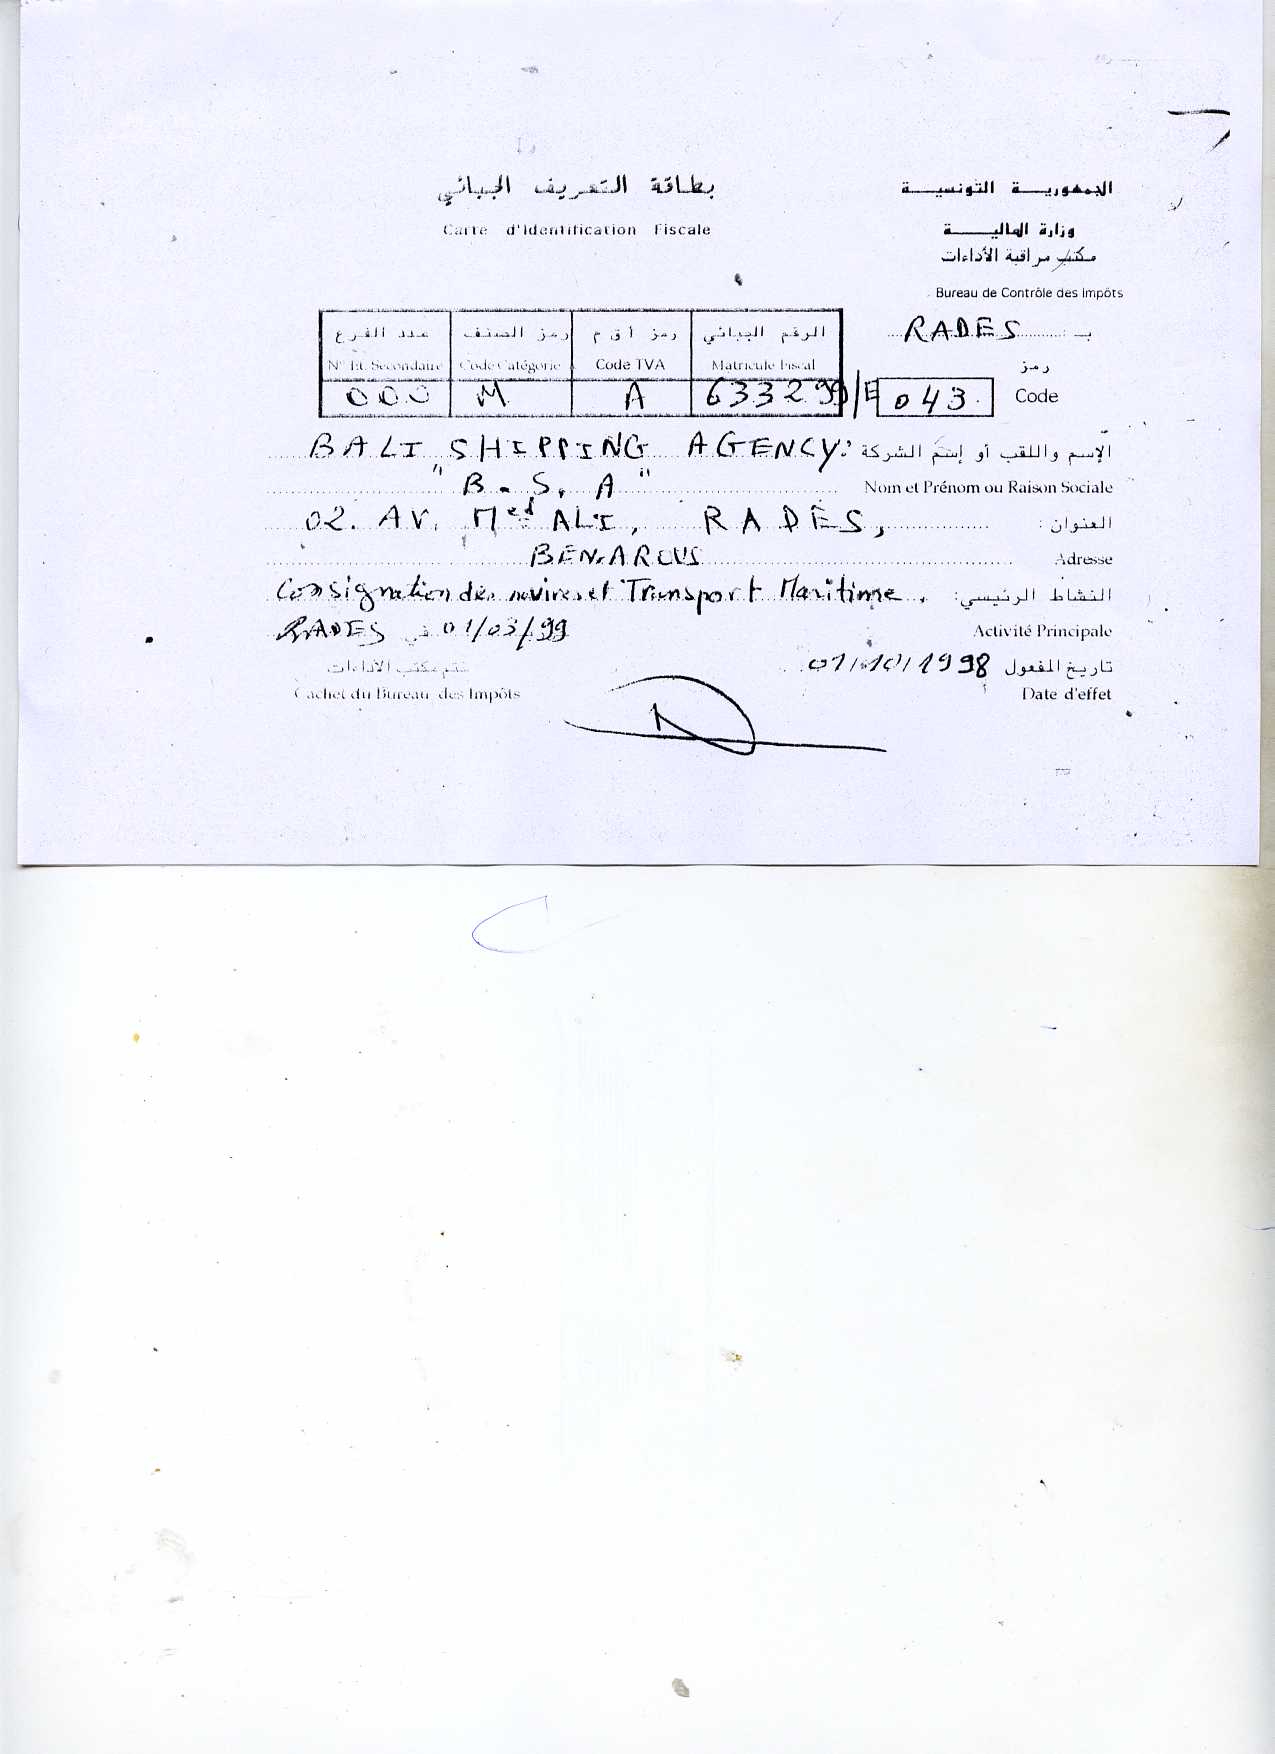 الجمهورية التونسية
وزارة المالية
مكتب مراقبة الأداءات
Bureau de Contrôle des Impôts
بـ : RADES
رمز
Code 043
بطاقة التعريف الجبائي
Carte d'Identification Fiscale
الرقم الجبائي رمز أ ق م رمز الصنف عدد الفرع
N° Et. Secondaire Code Catégorie Code TVA Matricule Fiscal
000 M A 633299/E
الإسم واللقب أو إسم الشركة : BALI SHIPPING AGENCY
"B.S.A" Nom et Prénom ou Raison Sociale
العنوان : 02. AV. Med ALI, RADÈS,
BEN.AROUS Adresse
النشاط الرئيسي: Consignation de navires et Transport Maritime.
RADES في 01/03/99 Activité Principale
تاريخ المفعول 01/10/1998
ختم مكتب الأداءات
Cachet du Bureau des Impôts Date d'effet